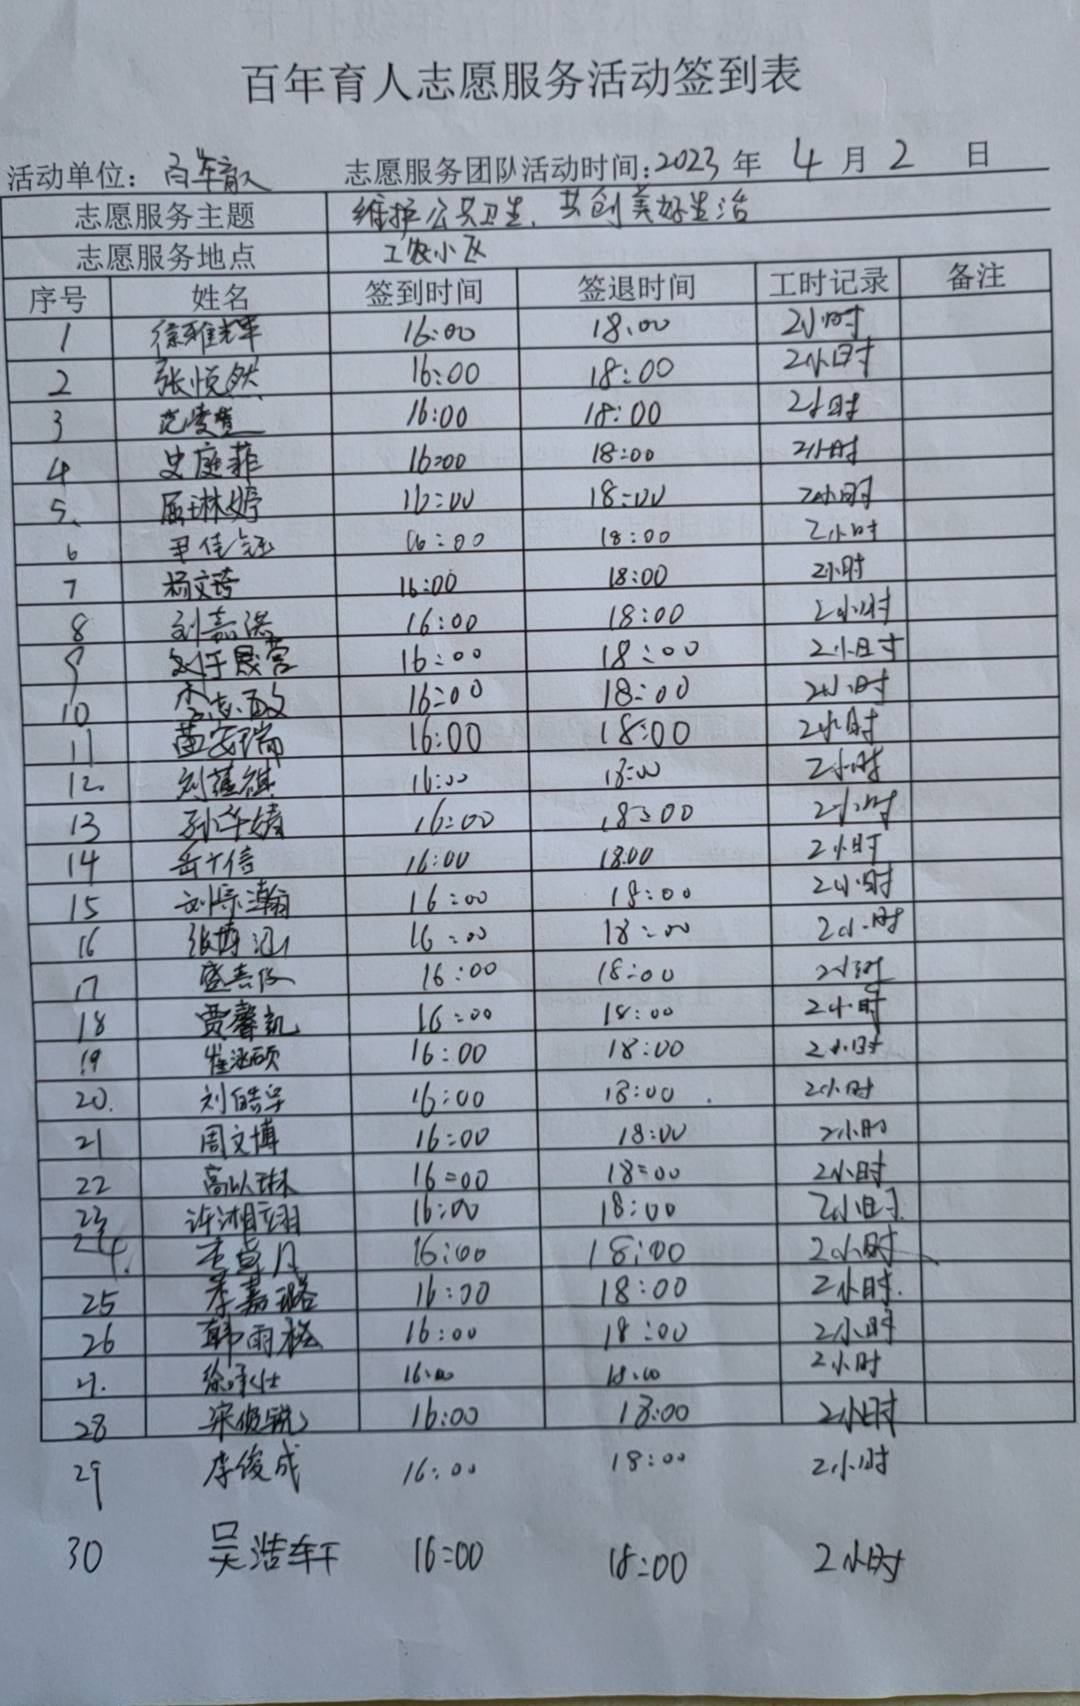 百年育人志愿服务活动签到表
活动单位：百年育人 志愿服务团队活动时间:2023 年 4 月 2 日
志愿服务主题 维护公共卫生，共创美好生活
志愿服务地点 工农小区
序号 姓名 签到时间 签退时间 工时记录 备注
1 16:00 18:00 2小时
2 张悦然 16:00 18:00 2小时
3 16:00 18:00 2小时
4 史庭菲 16:00 18:00 2小时
5. 屈琳婷 16:00 18:00 2小时
6 尹佳钰 16:00 18:00 2小时
7 杨文琦 16:00 18:00 2小时
8 刘嘉洛 16:00 18:00 2小时
9 16:00 18:00 2小时
10 16:00 18:00 2小时
11 16:00 18:00 2小时
12. 刘蕴祺 16:00 18:00 2小时
13 16:00 18:00 2小时
14 岳十信 16:00 18:00 2小时
15 刘宗瀚 16:00 18:00 2小时
16 张博涵 16:00 18:00 2小时
17 16:00 18:00 2小时
18 贾馨凯 16:00 18:00 2小时
19 16:00 18:00 2小时
20. 刘皓宇 16:00 18:00 2小时
21 周文博 16:00 18:00 2小时
22 高以琳 16:00 18:00 2小时
23 许湘翊 16:00 18:00 2小时.
24. 16:00 18:00 2小时
25 李嘉璐 16:00 18:00 2小时.
26 韩雨桐 16:00 18:00 2小时
27. 16:00 18:00 2小时
28 宋俊锐 16:00 18:00 2小时
29 李俊成 16:00 18:00 2小时
30 吴浩轩 16:00 18:00 2小时